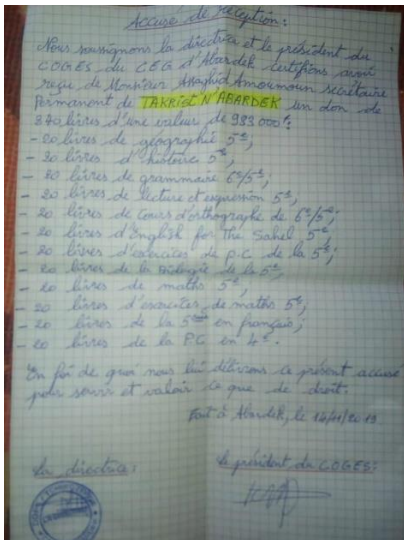 Accusé de Réception :
Nous soussignons la directrice et le président du
COGES du CEG d'Abardek certifions avoir
reçu de Monsieur Assaghid Amoumoun secrétaire
Permanent de TAKRIST N'ABARDEK un don de
livres d'une valeur de 983 000 f.
- 20 livres de géographie 5e,
- 20 livres d'histoire 5e,
- 20 livres de grammaire 6e/5e,
- 20 livres de lecture et expression 5e,
- 20 livres de cours d'orthographe de 6e/5e;
- 20 livres d'English for the Sahel 5e,
- 20 livres d'exercices de P.C de la 5e;
- 20 livres de la Biologie de la 5e,
- 20 livres de maths 5e,
- 20 livres d'exercices de maths 5e;
- 20 livres de la 5e en français;
- 20 livres de la P.C en 4e.
En foi de quoi nous lui délivrons ce présent accusé
pour servir et valoir ce que de droit.
Fait à Abardek, le 14/11/2019
La directrice :
Le président du COGES: